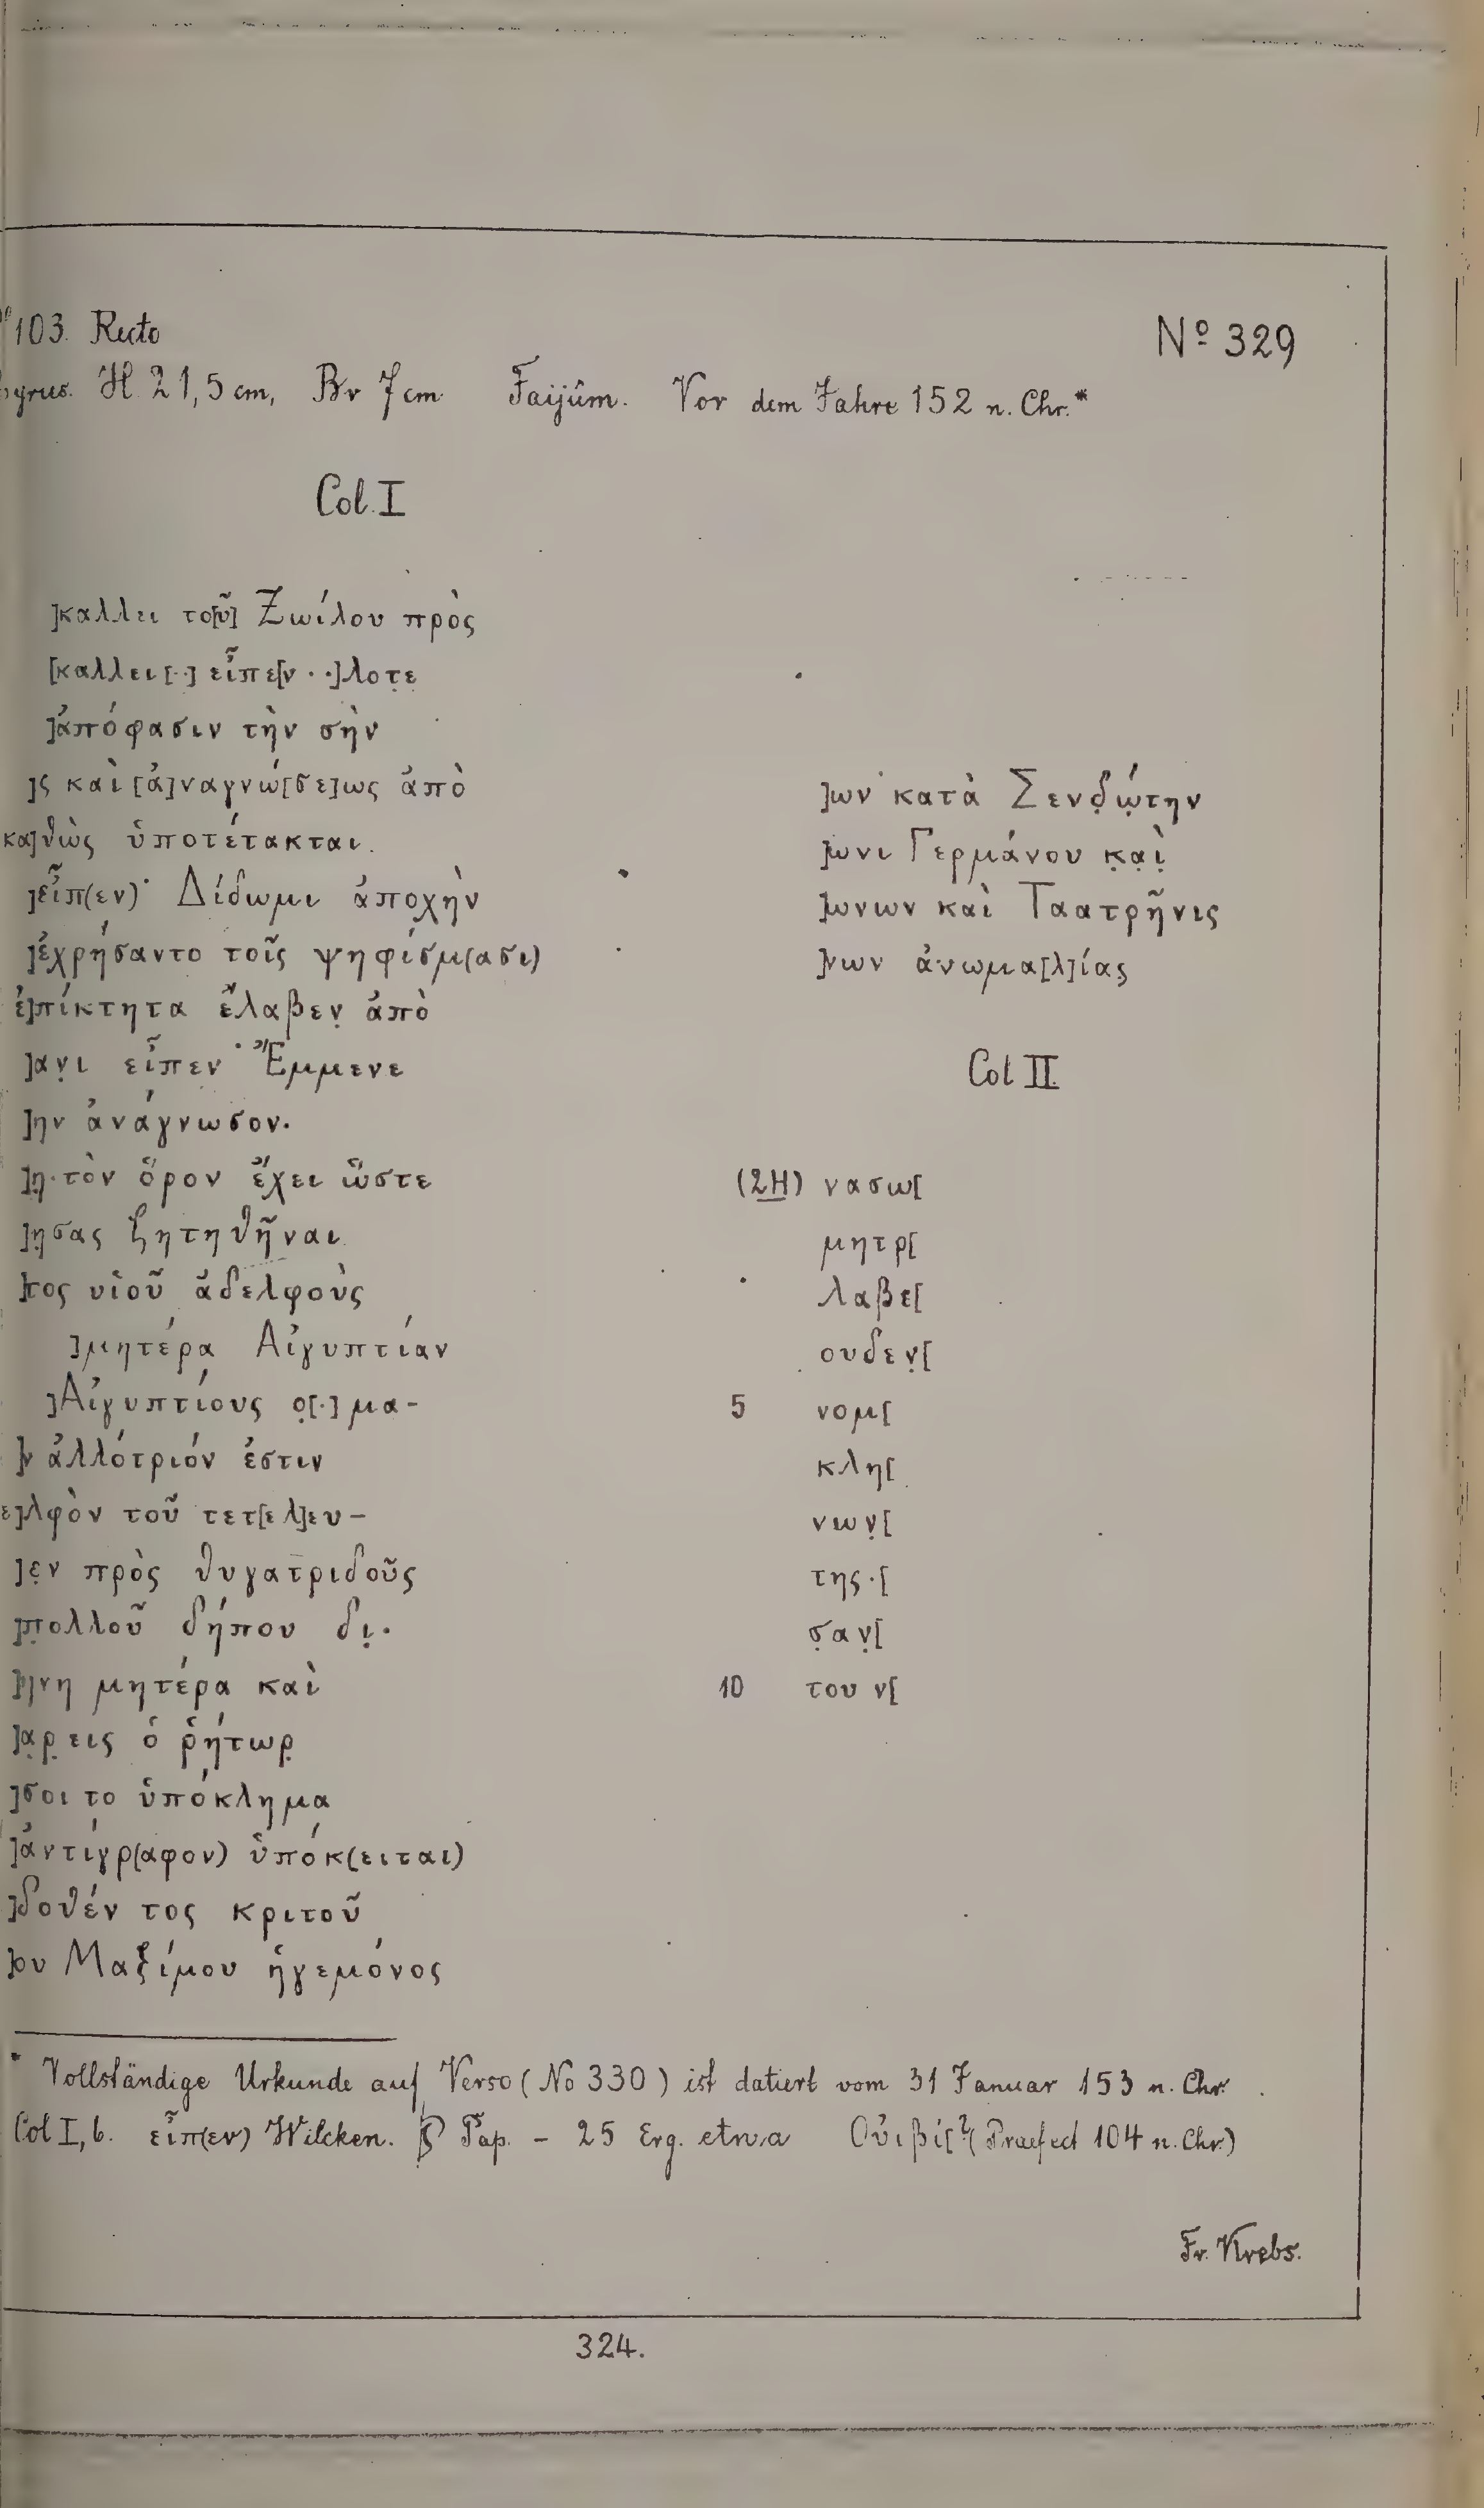 103. Recto
Nº 329
H. 21,5 cm, Br 7 cm Faijûm. Vor dem Jahre 152 n. Chr.*
Col. I
]καλλει το[ῦ] Ζωίλου πρὸς
[καλλει[··] εἶπε[ν··]λοτ̣ε
]ἀπόφασιν τὴν σὴν
]ς καὶ [ἀ]ναγνώ[σε]ως ἀπὸ
κα]θὼς ὑποτέτακται.
]εἶπ(εν)· Δίδωμι ἀποχὴν
]ἐχρήσαντο τοῖς ψηφίσμ(ασι)
ἐ]πίκτητα ἔλαβεν̣ ἀπὸ
]αν̣ι εἶπεν· Ἔμμενε
]ην ἀνάγνωσον.
]η̣·τὸν ὅρον ἔχει ὥστε
]η̣σας ζητηθῆναι
]τος υἱοῦ ἀδελφοὺς
]μητέρα Αἰγυπτίαν
]Αἰγυπτίους ο̣[·]μα-
]ν ἀλλότριόν ἐστιν
ε]λφὸν τοῦ τετ[ελ]ευ-
]ε̣ν πρὸς θυγατριδοῦς
]π̣ολλοῦ δήπου δι̣·
]ηνη μητέρα καὶ
]α̣ρ̣εις ὁ ῥήτωρ̣
]σοι το ὑπόκλημα
]ἀντίγρ(αφον) ὑπόκ(ειται)
]δοθέντος κριτοῦ
]ου Μαξίμου ἡγεμόνος
]ων κατὰ Σενδ̣ώ̣την
]ωνι Γερμάνου κ̣α̣ὶ̣
]ωνων καὶ Ταατρῆνις
]νων ἀνωμα[λ]ίας
Col II
(2H) νασω[
μητρ[
λαβε[
ουδεν̣[
5 νομ[
κλη[
νων̣[
της·[
σ̣αν̣[
10 του ν[
* Vollständige Urkunde auf Verso (No 330) ist datiert vom 31 Januar 153 n. Chr.
Col I, 6. εἶπ(εν) Wilcken. Pap. – 25 Erg. etwa Οὐιβί[? (Praefect 104 n. Chr.)
Fr. Krebs.
324.